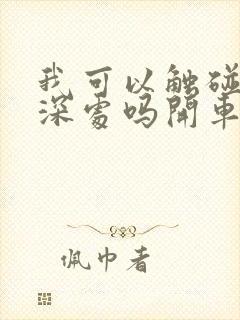 我可以触碰
深處吗開車
佩巾者